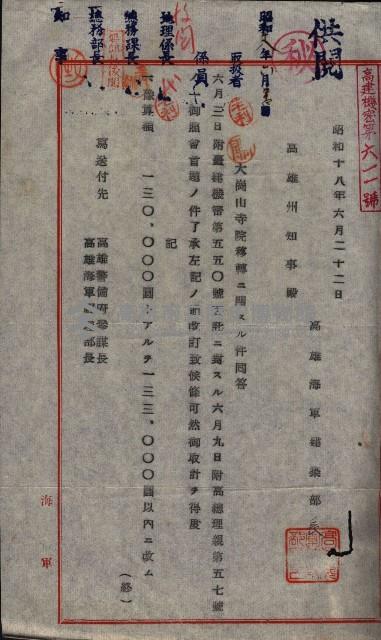 供閲
秘
高建機密第六一一號
昭和十八年六月二十二日
高雄海軍建築部長
高雄州知事殿
大崗山寺院移轉ニ關スル件回答
六月三日附臺建機密第五五〇號
ニ對スル六月九日附高總理親第五七號
御照會首題ノ件了承左記ノ通改訂致候條可然御取計ヲ得度
記
一、豫算額 一三〇、〇〇〇圓トアルヲ一三三、〇〇〇圓以内ニ改ム
（終）
寫送付先
高雄警備府參謀長
高雄海軍
部長
海軍
昭和
取扱者
係員
地理係長
總務課長
總務部長
知事